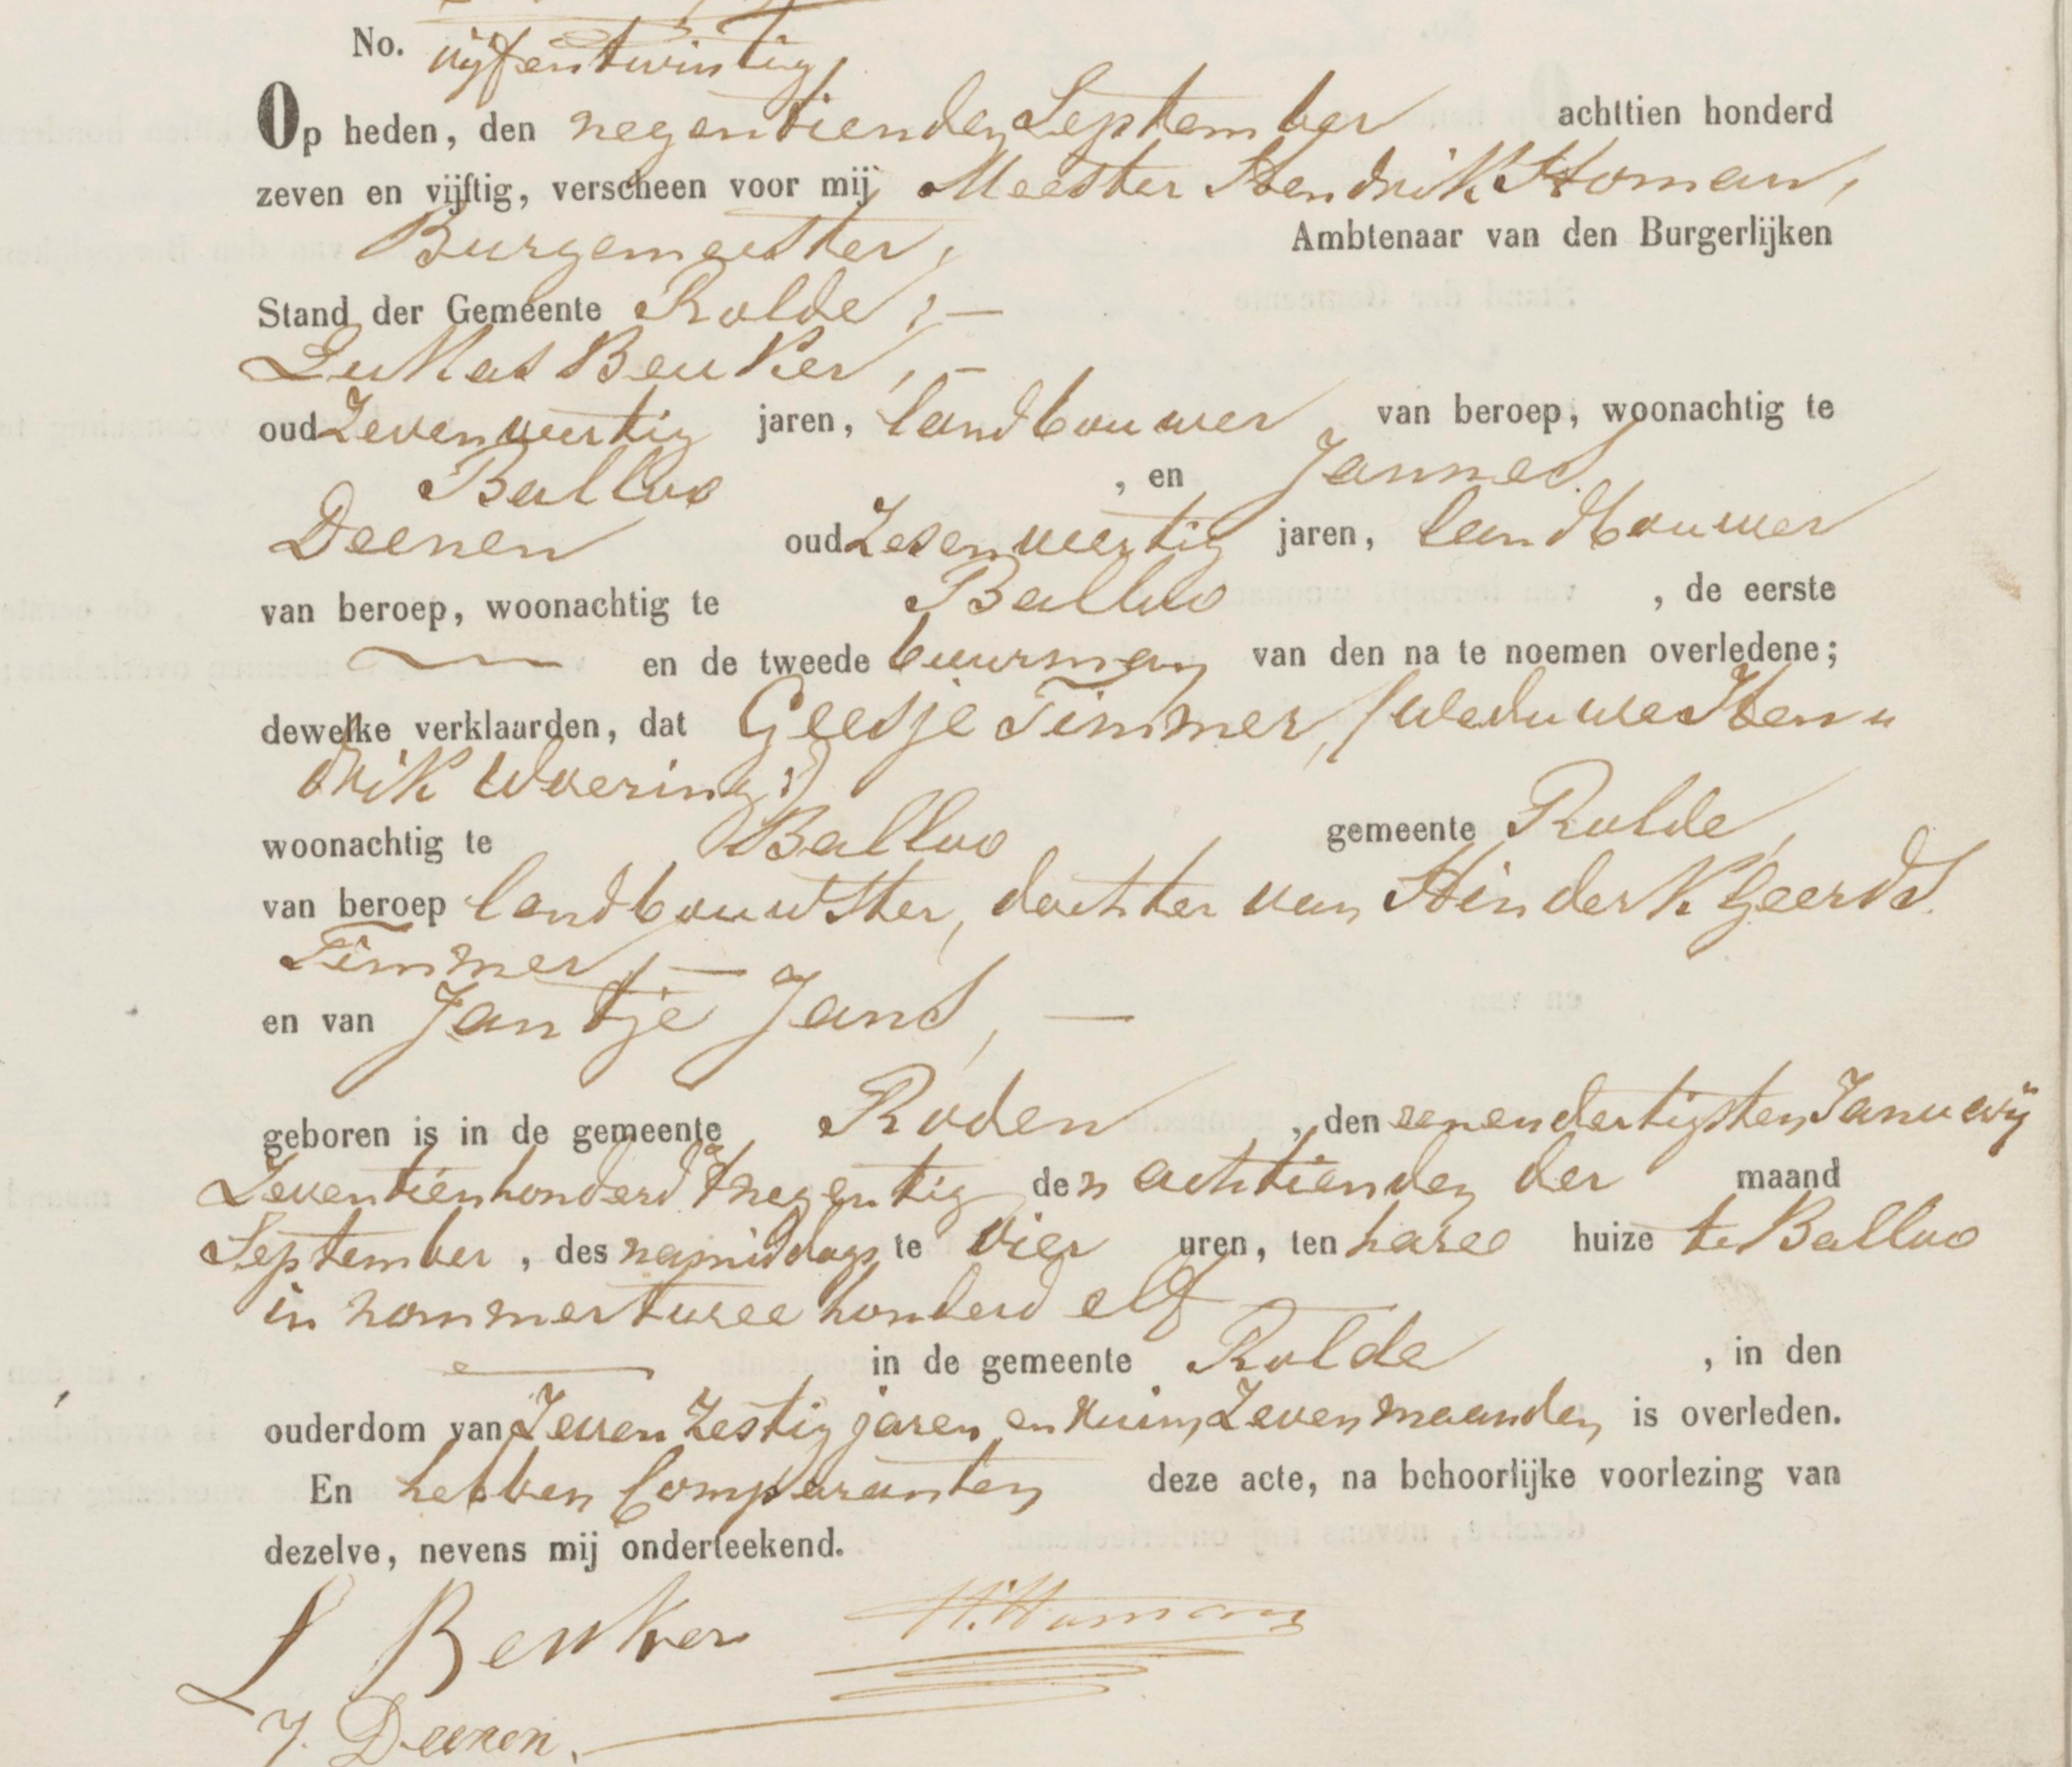 No. vijfentwintig,
Op heden, den negentienden September achttien honderd
zeven en vijftig, verscheen voor mij Meester Hendrik Homan,
Burgemeester, Ambtenaar van den Burgerlijken
Stand der Gemeente Rolde; —
Lukas Beuker, —
oud Zevenveertig jaren, landbouwer van beroep, woonachtig te
Balloo , en Jannes
Deenen oud Zesenveertig jaren, landbouwer
van beroep, woonachtig te Balloo , de eerste
— en de tweede buurman van den na te noemen overledene;
dewelke verklaarden, dat Geesje Timmer, (weduwe Hen„
drik Woering;)
woonachtig te Balloo gemeente Rolde,
van beroep landbouwster, dochter van Hinderk Geerds
Timmer, —
en van Jantje Jans, —
geboren is in de gemeente Roden , den eenendertigsten Januarij
Zeventienhonderd negentig den achttienden der maand
September , des namiddags te vier uren, ten haree huize te Balloo
in nommer twee honderd elf
— in de gemeente Rolde , in den
ouderdom van Zeven Zestig jaren en ruim Zeven maanden is overleden.
En hebben Comparanten deze acte, na behoorlijke voorlezing van
dezelve, nevens mij onderteekend.
L Beuker H. Homan
J. Deenen.